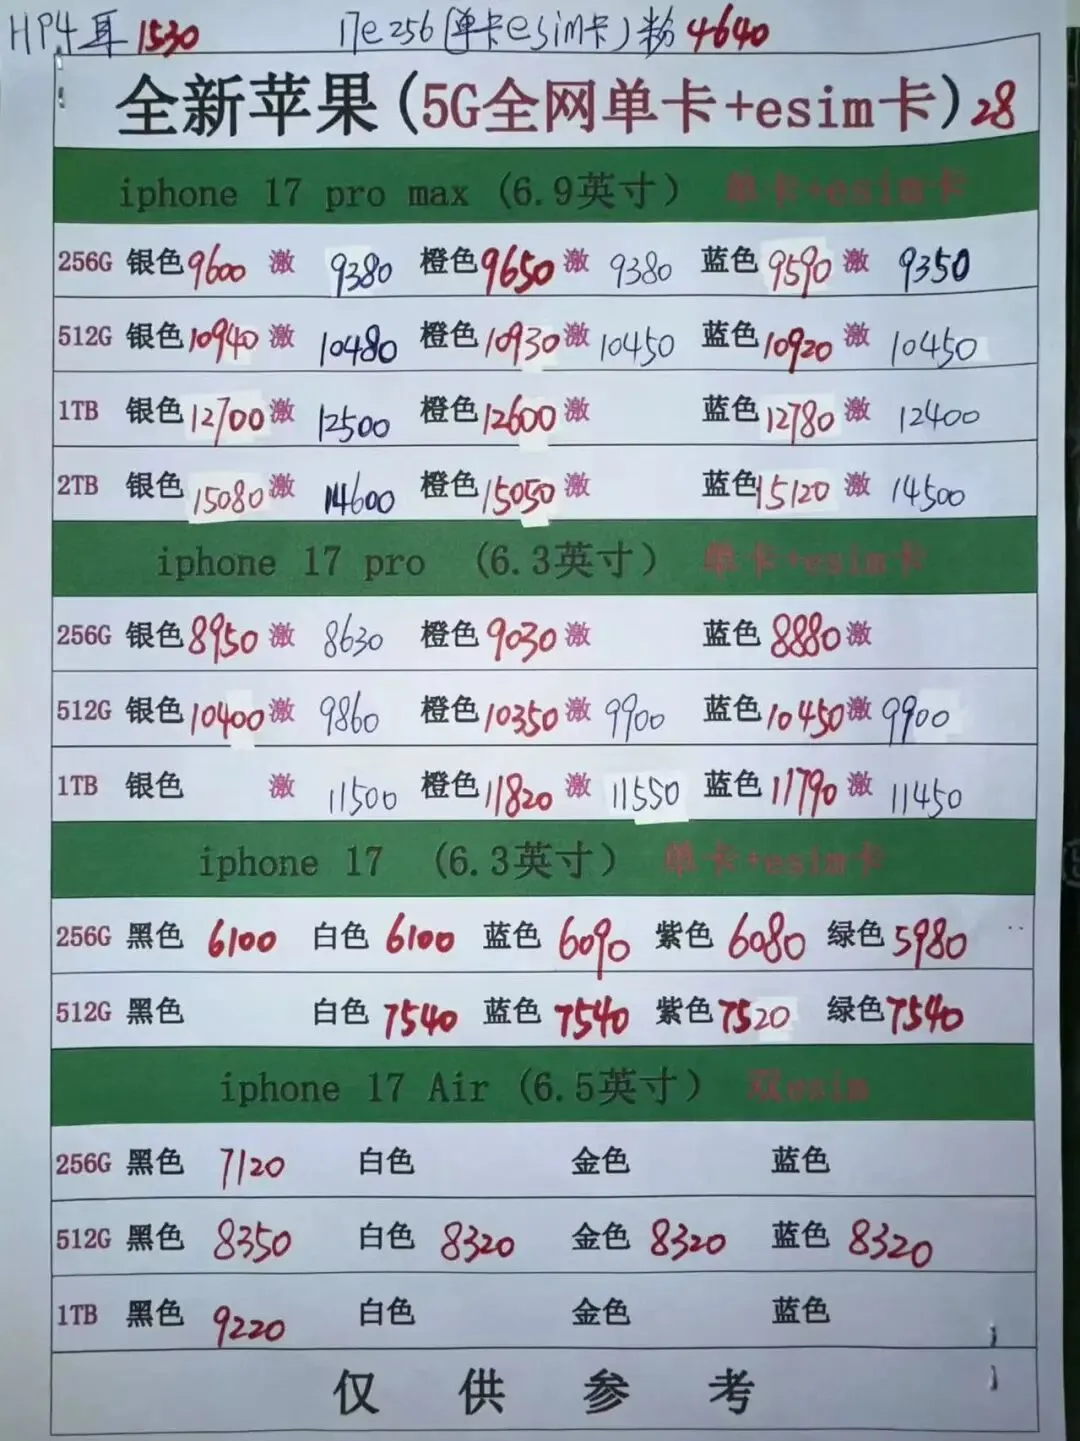 HP4耳 1530 17e 256(单卡esim卡)粉 4640
全新苹果(5G全网单卡+esim卡)28
iphone 17 pro max (6.9英寸) 单卡+esim卡
256G 银色 9600 激 9380 橙色 9650 激 9380 蓝色 9590 激 9350
512G 银色 10940 激 10480 橙色 10930 激 10450 蓝色 10920 激 10450
1TB 银色 12700 激 12500 橙色 12600 激 蓝色 12780 激 12400
2TB 银色 15080 激 14600 橙色 15050 激 蓝色 15120 激 14500
iphone 17 pro (6.3英寸) 单卡+esim卡
256G 银色 8950 激 8630 橙色 9030 激 蓝色 8880 激
512G 银色 10400 激 9860 橙色 10350 激 9900 蓝色 10450 激 9900
1TB 银色 激 11500 橙色 11820 激 11550 蓝色 11790 激 11450
iphone 17 (6.3英寸) 单卡+esim卡
256G 黑色 6100 白色 6100 蓝色 6090 紫色 6080 绿色 5980
512G 黑色 白色 7540 蓝色 7540 紫色 7520 绿色 7540
iphone 17 Air (6.5英寸) 双esim
256G 黑色 7120 白色 金色 蓝色
512G 黑色 8350 白色 8320 金色 8320 蓝色 8320
1TB 黑色 9220 白色 金色 蓝色
仅供参考